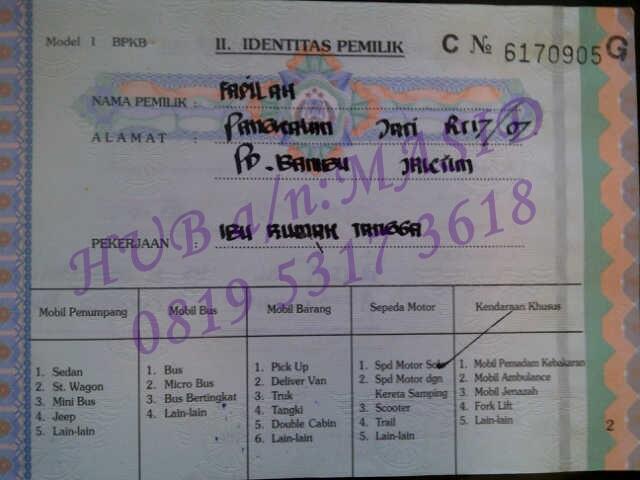 Model 1 BPKB
II. IDENTITAS PEMILIK
C № 6170905 G
NAMA PEMILIK : FADILAH
ALAMAT : PANGKALAN JATI RT17/07
PD. BAMBU JAKTIM
PEKERJAAN : IBU RUMAH TANGGA
HUB a/n:MASID
0819 5317 3618
Mobil Penumpang
1. Sedan
2. St. Wagon
3. Mini Bus
4. Jeep
5. Lain-lain
Mobil Bus
1. Bus
2. Micro Bus
3. Bus Bertingkat
4. Lain-lain
Mobil Barang
1. Pick Up
2. Deliver Van
3. Truk
4. Tangki
5. Double Cabin
6. Lain-lain
Sepeda Motor
1. Spd Motor Solo
2. Spd Motor dgn
Kereta Samping
3. Scooter
4. Trail
5. Lain-lain
Kendaraan Khusus
1. Mobil Pemadam Kebakaran
2. Mobil Ambulance
3. Mobil Jenazah
4. Fork Lift
5. Lain-lain
2